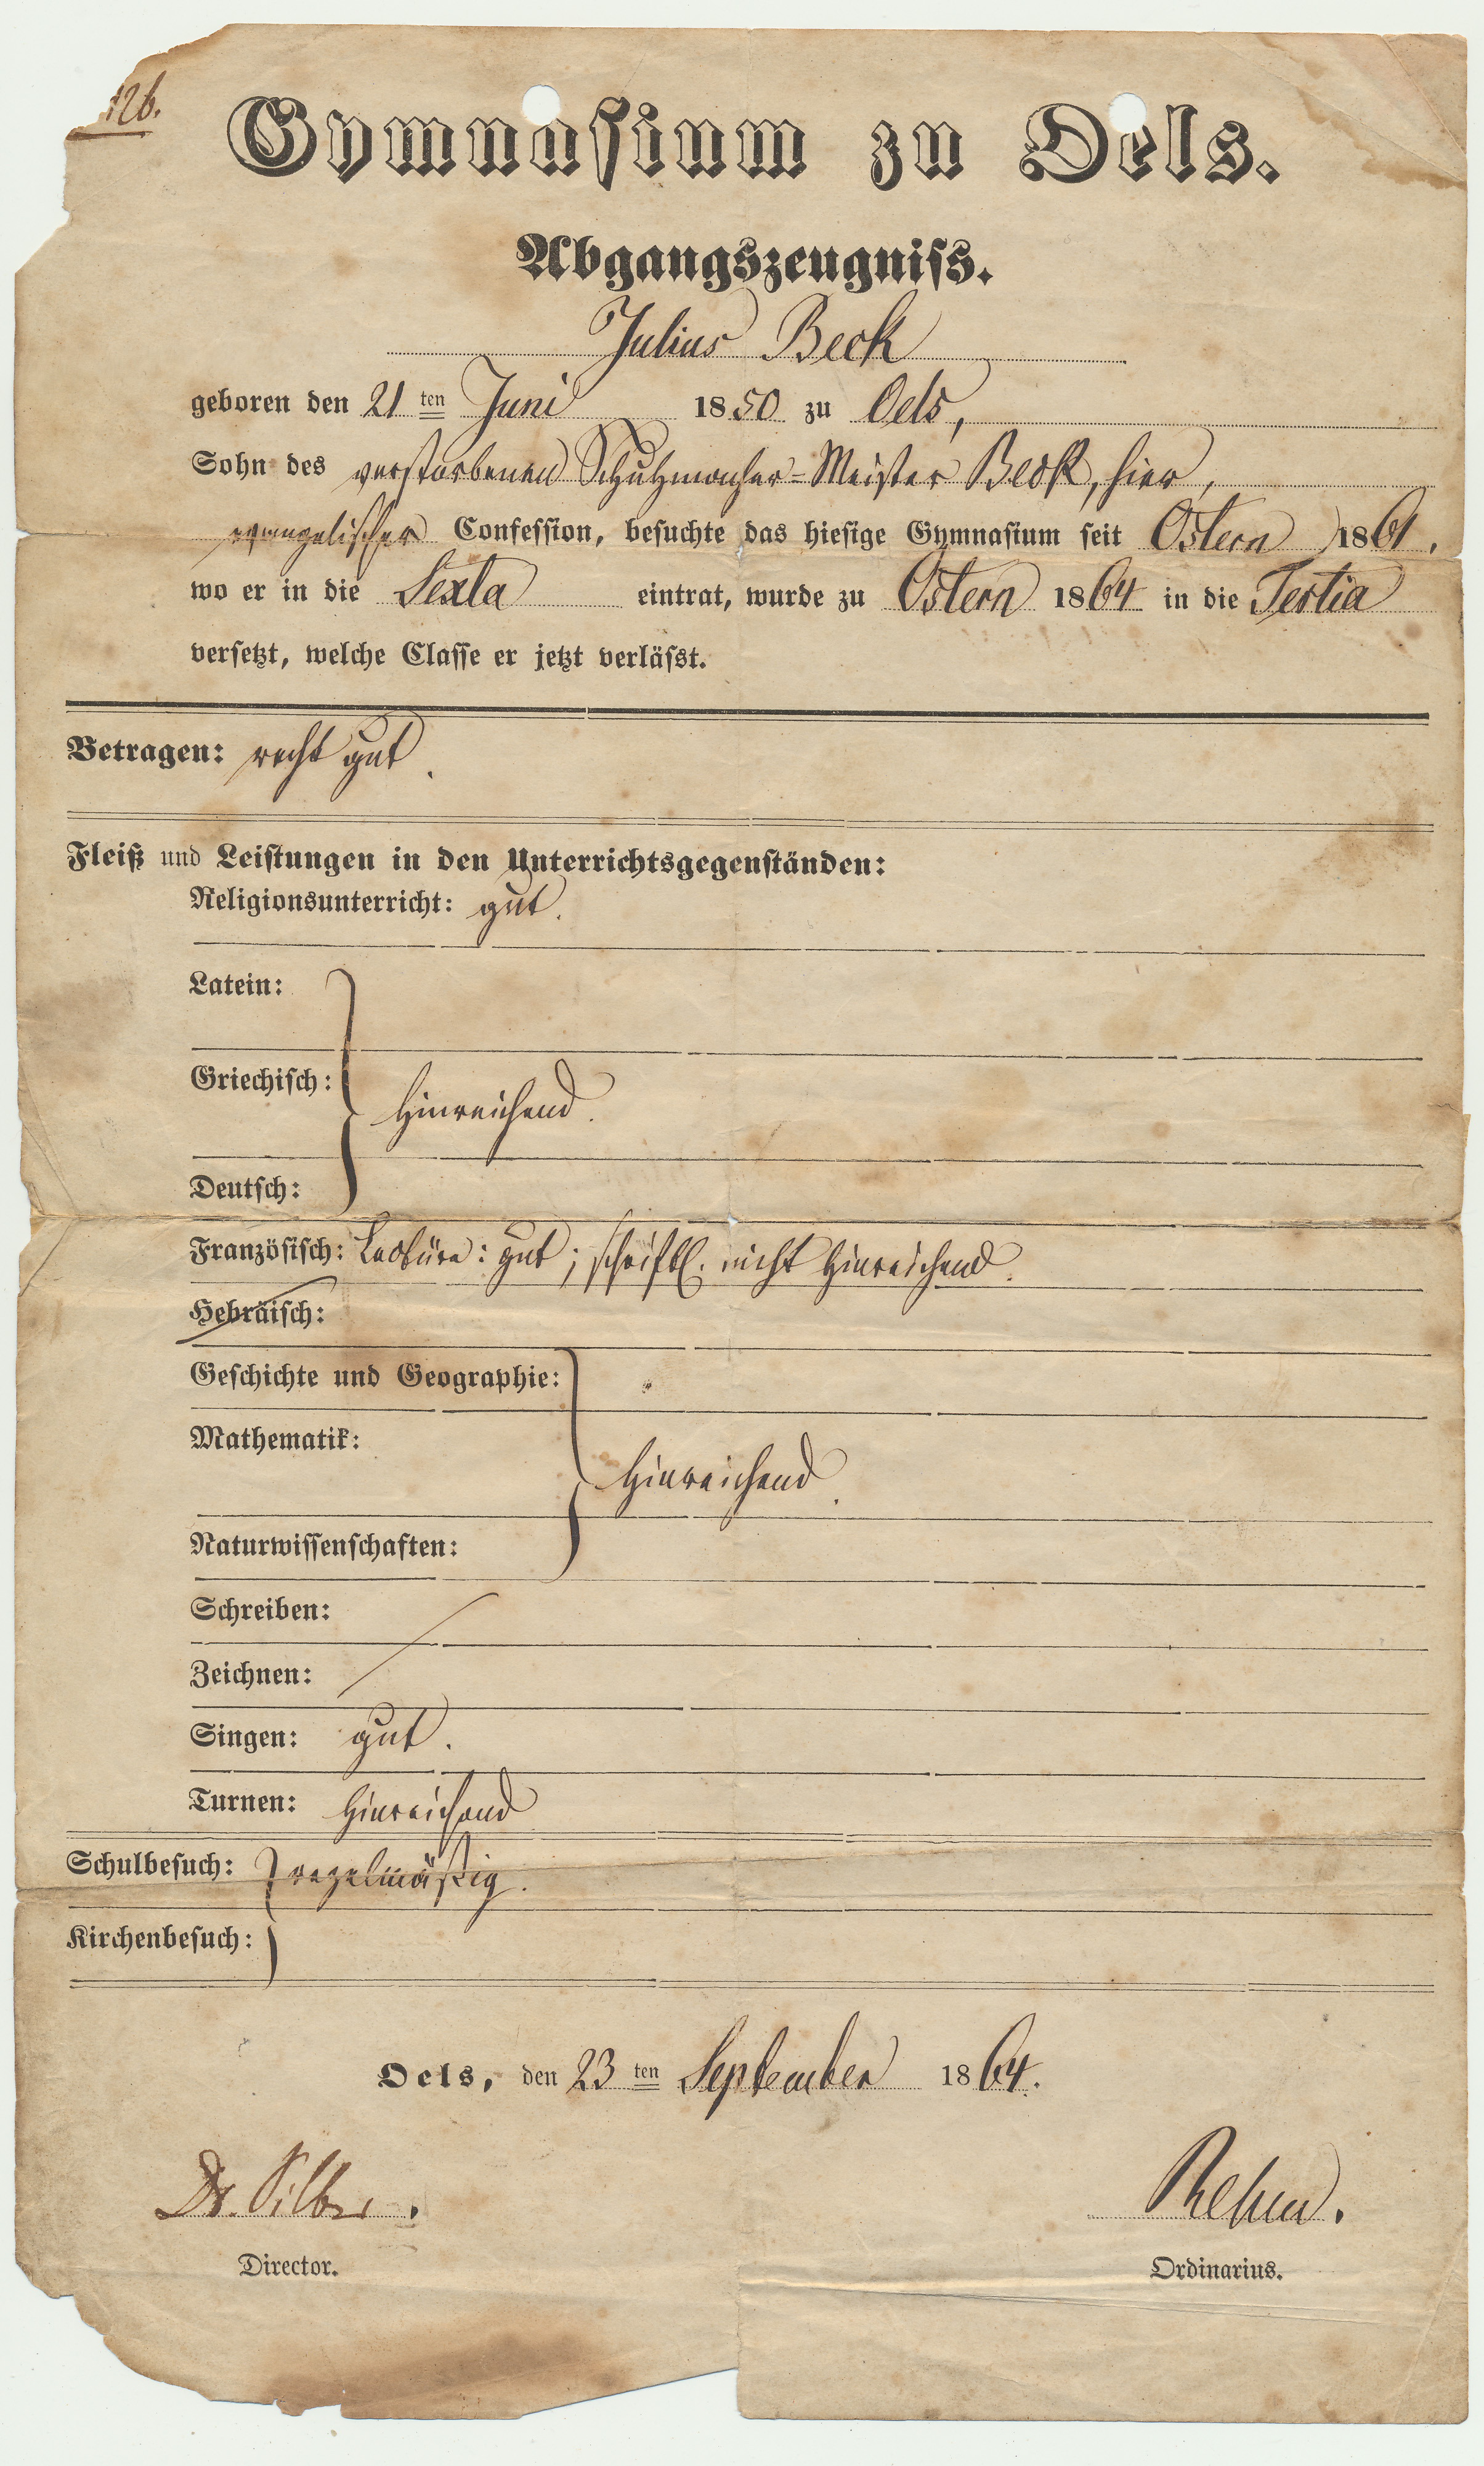 126.
Gymnasium zu Oels.
Abgangszeugniss.
Julius Beck
geboren den 21 ten Juni 1850 zu Oels,
Sohn des verstorbenen Schuhmacher-Meister Beck, hier,
evangelischer Confession, besuchte das hiesige Gymnasium seit Ostern 1861.
wo er in die Sexta eintrat, wurde zu Ostern 1864 in die Tertia
versetzt, welche Classe er jetzt verlässt.
Betragen: recht gut.
Fleiß und Leistungen in den Unterrichtsgegenständen:
Religionsunterricht: gut.
Latein:
Griechisch:
hinreichend.
Deutsch:
Französisch: Lectüre: gut; schriftl. nicht hinreichend.
Hebräisch:
Geschichte und Geographie:
Mathematik:
hinreichend.
Naturwissenschaften:
Schreiben:
Zeichnen:
Singen: gut.
Turnen: hinreichend
Schulbesuch: regelmäßig.
Kirchenbesuch:
Oels, den 23 ten September 1864.
Dr. Silber. Rehm.
Director. Ordinarius.